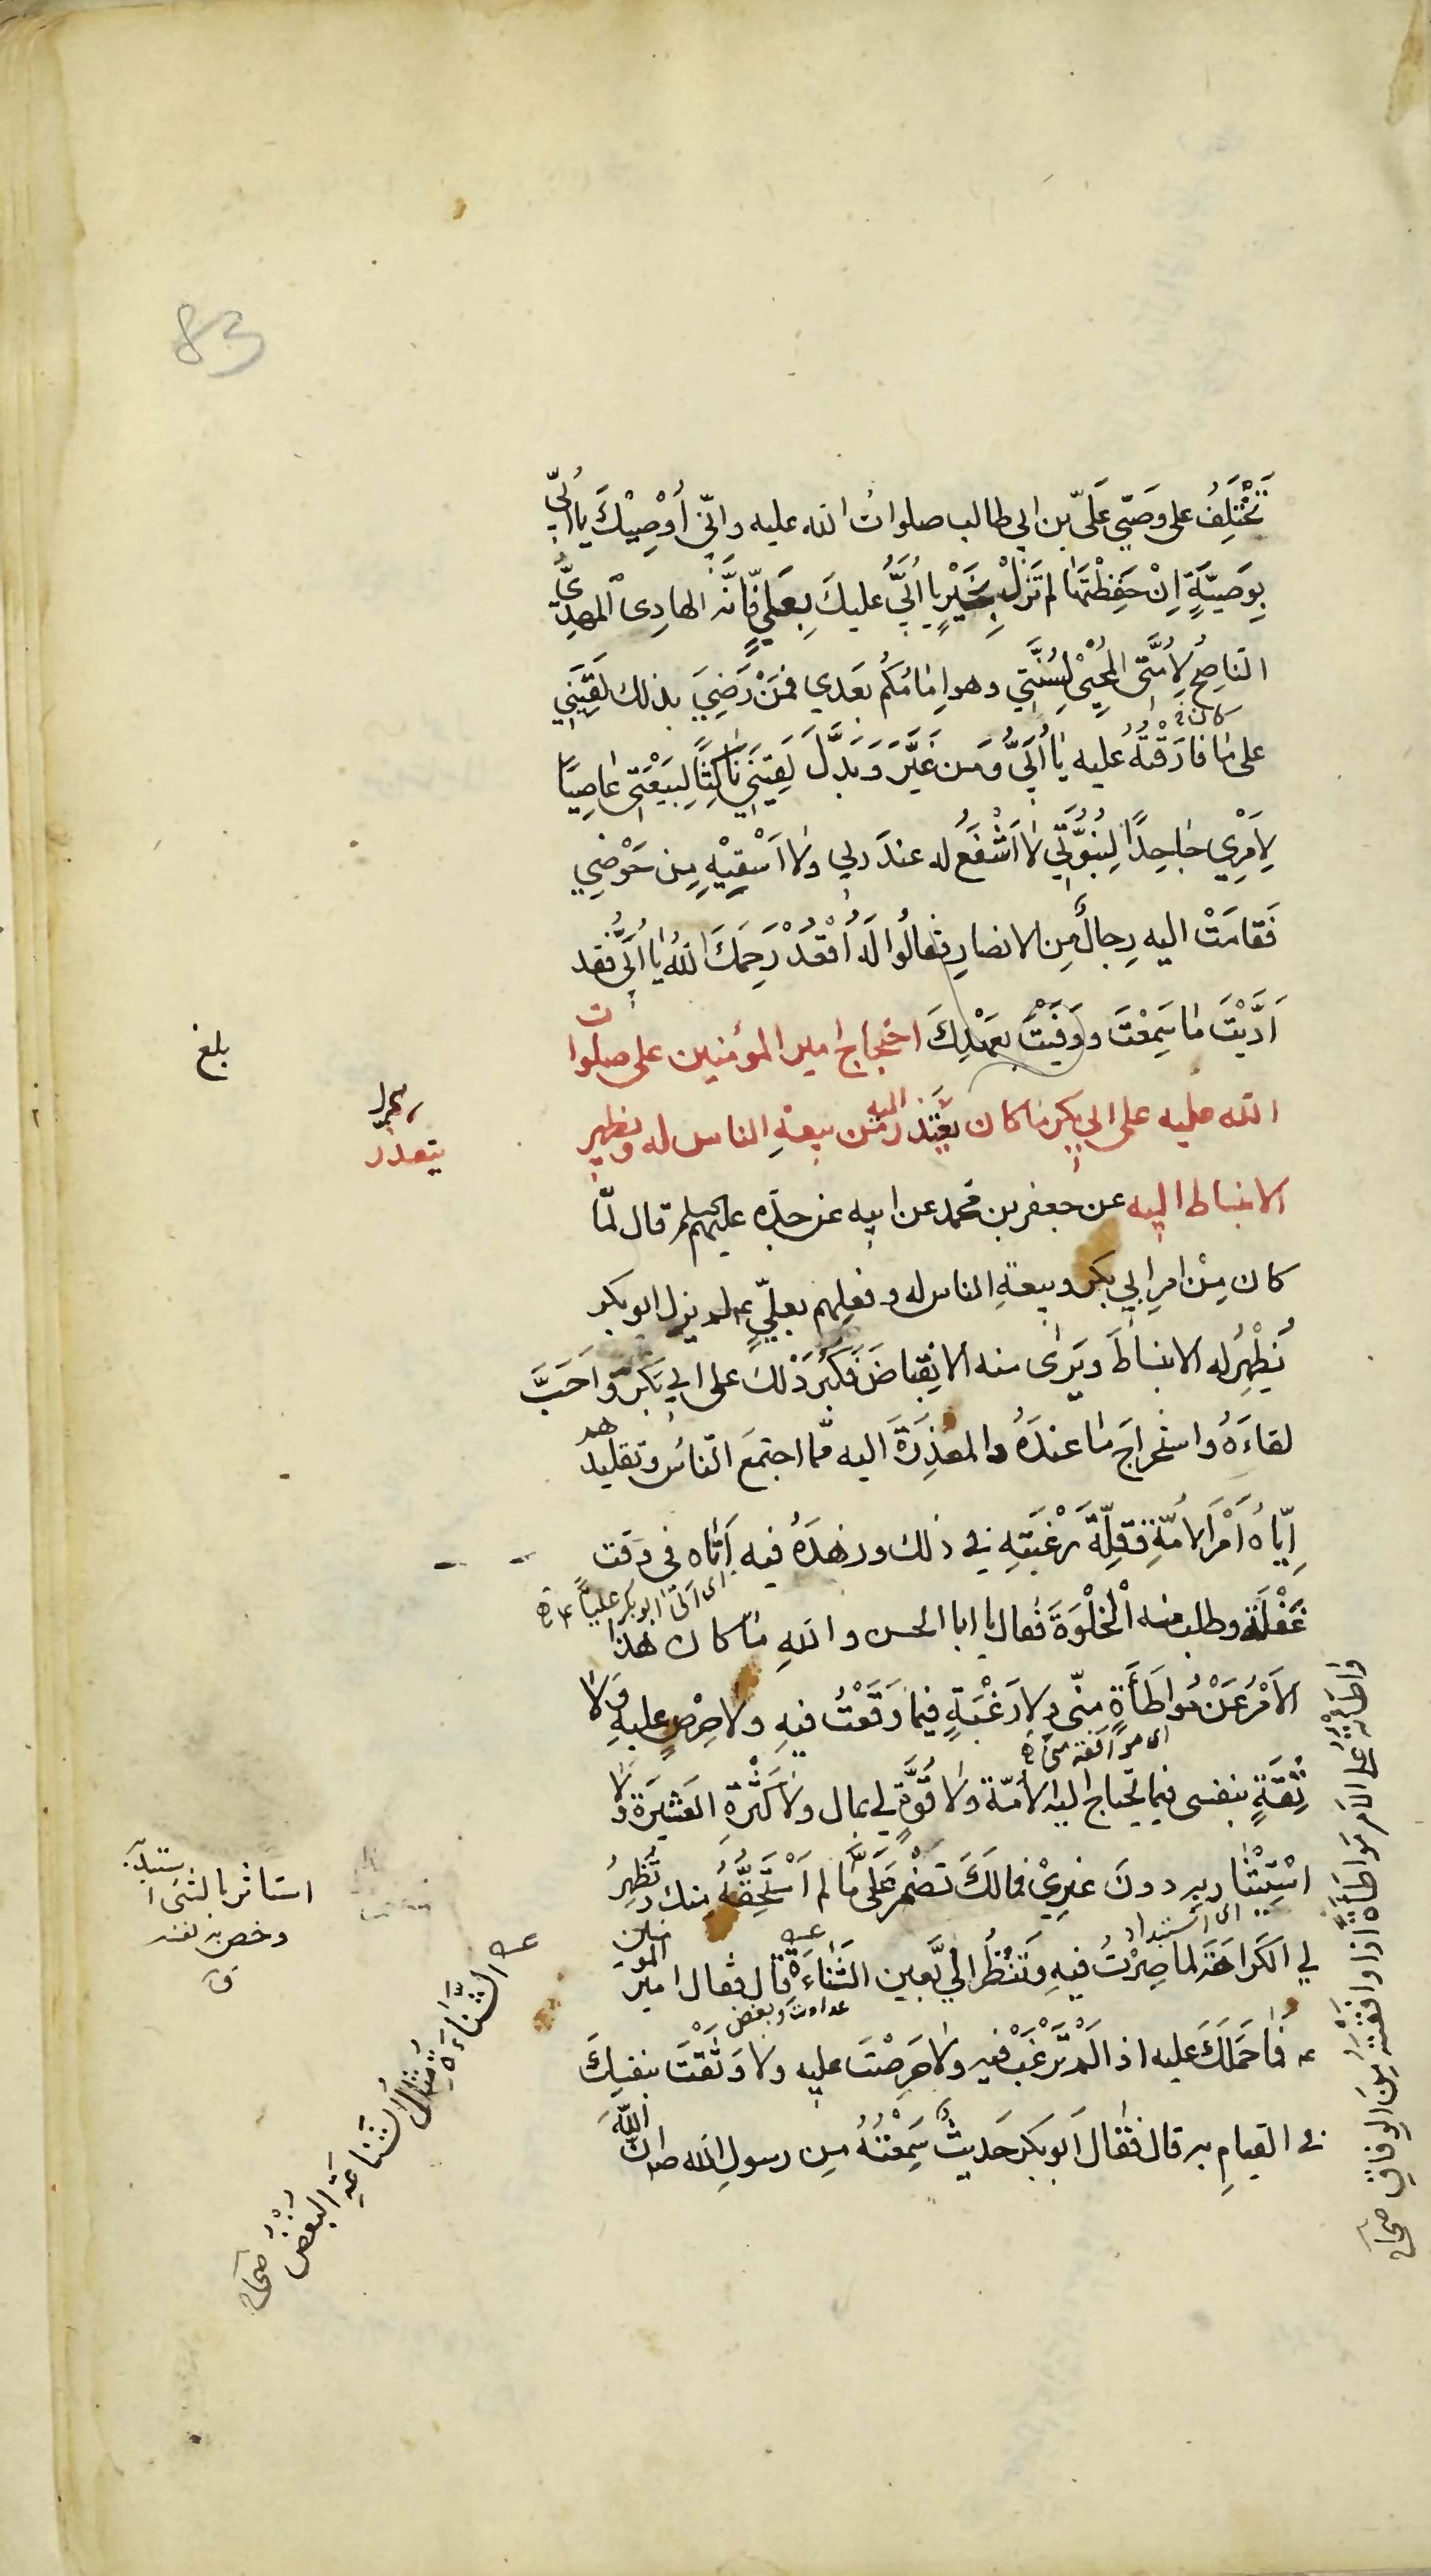 83
تَخْتَلِفُ على وصَيّي عَلَيّ بن ابي طالب صلواتُ الله عليه وانّي اُوصِيْكَ يا اُبَيُّ
بِوَصِيَّةٍ اِنْ حَفِظْتَهَا لم تَزَلْ بِخَيْرٍ يا اُبَيُّ عليكَ بِعَلِيٍّ فَاِنَّه الهادِى المهدِىُّ
الناصِحُ لِاُمَّتي المُحْيِي لِسُنَّتي وهو اِمامُكُم بعدي فمَنْ رَضِيَ بذلك لَقِيَني
على ما فارَقْتُهُ عليه يا اُبَيُّ ومَن غَيَّرَ وَبَدَّلَ لَقِيَني ناكِثًا لِبَيْعَتي عاصِيًا
لِاَمْرِي جاحِدًا لِنُبُوَّتي لا اَشْفَعُ له عندَ ربي ولا اَسْقِيْهِ مِن حَوْضي
فَقامَتْ اليه رِجالٌ مِن الانصارِ فقالُوا له اُقْعُدْ رَحِمَكَ اللهُ يا اُبَيُّ فقد
اَدَّيْتَ ما سَمِعْتَ ووَفَيْتَ بعَهْدِكَ احتجاج امير المؤمنين على صلوات
الله عليه على ابي بكر ما كان يعتذر اليه من بيعةِ الناس له ويظهر
الانبساط اليه عن جعفر بن محمد عن ابيه عن جدّه عليهم السلم قال لمّا
كان مِنْ امرِ ابي بكر وبيعةِ الناس له وفعلِهم بعليّ عم لم يزل ابو بكر
يُظْهِرُ له الانبساطَ ويَرٰى منه الانقِباضَ فَكَبُرَ ذٰلك على ابي بكر واَحَبَّ
لقاءَهُ واستخراجَ ما عندَهُ والمعذِرَةَ اليه ممّا اجتمَعَ النّاسُ وتقليدهم
اِيّاهُ اَمْرَ الاُمّةِ وقِلّةَ رَغْبَتِهِ في ذلك وزهدَهُ فيه اَتاه فى وقت
اى اتى ابو بكر علياً عم
غَفْلَةٍ وطلب منه الْخَلْوَةَ فقال يا ابا الحسن واللهِ ما كان هذا
الاَمْرُ عَنْ مُواطَأَةٍ مِنّي ولا رَغْبَةٍ فيما وَقَعْتُ فيهِ ولا حِرْصٍ عليهِ ولا
اى موافقة منى
ثِقَةٍ بنفسى فيما يحتاج اليه الاُمّة ولا قُوَّةٍ لي بمال ولا كَثْرَةِ العَشيرَة ولا
اسْتِيْثارٍ به دونَ غيرِيْ فمالَكَ تُضْمِرُ عَلَيَّ ما لم اَسْتَحِقَّهُ منك وتُظهِرُ
اى استبداد
لي الكَراهَةَ لما صِرْتُ فيهِ وتَنْظُرُ اليَّ بعين الشَّناءَةِ قال فقال امير المؤمنين
عداوت وبغض
عم فما حَمَلَكَ عليه اذا لَمْ تَرْغَبْ فيه ولا حَرَصْتَ عليه ولا وَثَقْتَ بنفسِكَ
في القيامِ به قال فقال ابو بكر حَديثٌ سَمِعْتُهُ مِن رسولِ الله صم انّ اللّهَ
بلغ
يتعذر
استاثر بالشئ استبد به
وخص به نفسه
ق
الشناءة مثال الشناعة البغض صحاح
واطأته على الامر مواطأة اذا وافقته من الوفاق صحاح